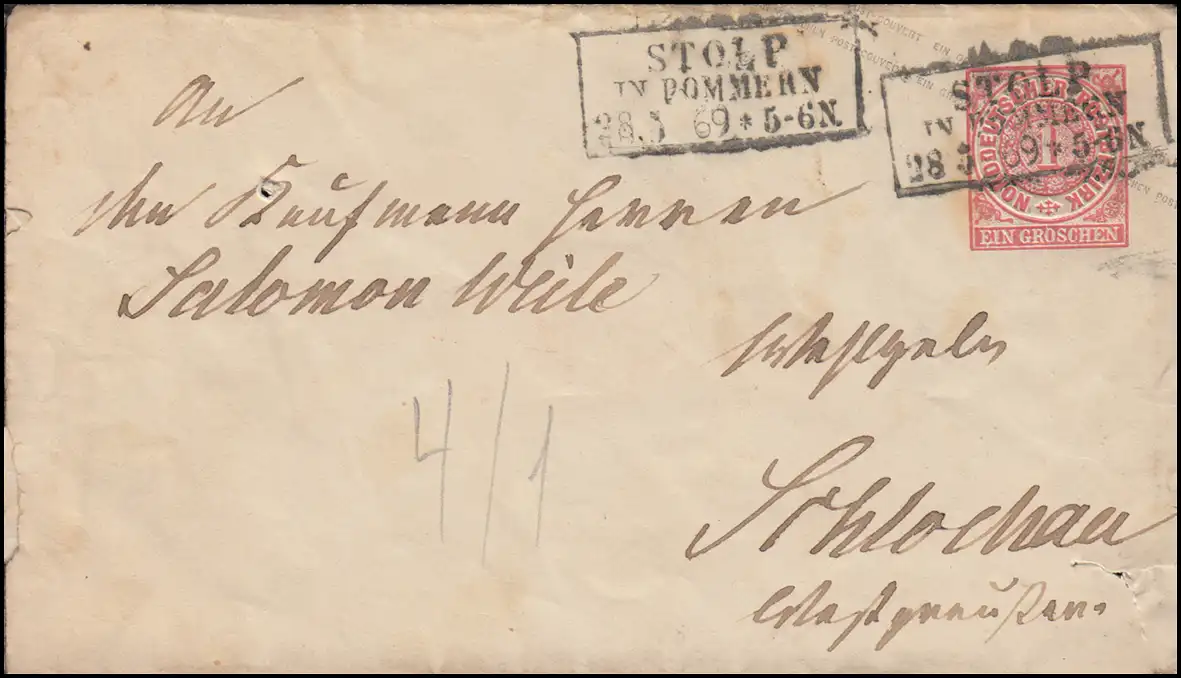 STOLP
IN POMMERN
28.3 69 * 5-6N.
STOLP
IN POMMERN
28 3 69 * 5-6N
NORDDEUTSCHER POSTBEZIRK
1
EIN GROSCHEN
An
den Kaufmann Herren
Salomon Weile
Schlochau
Westpreußen.
4/1